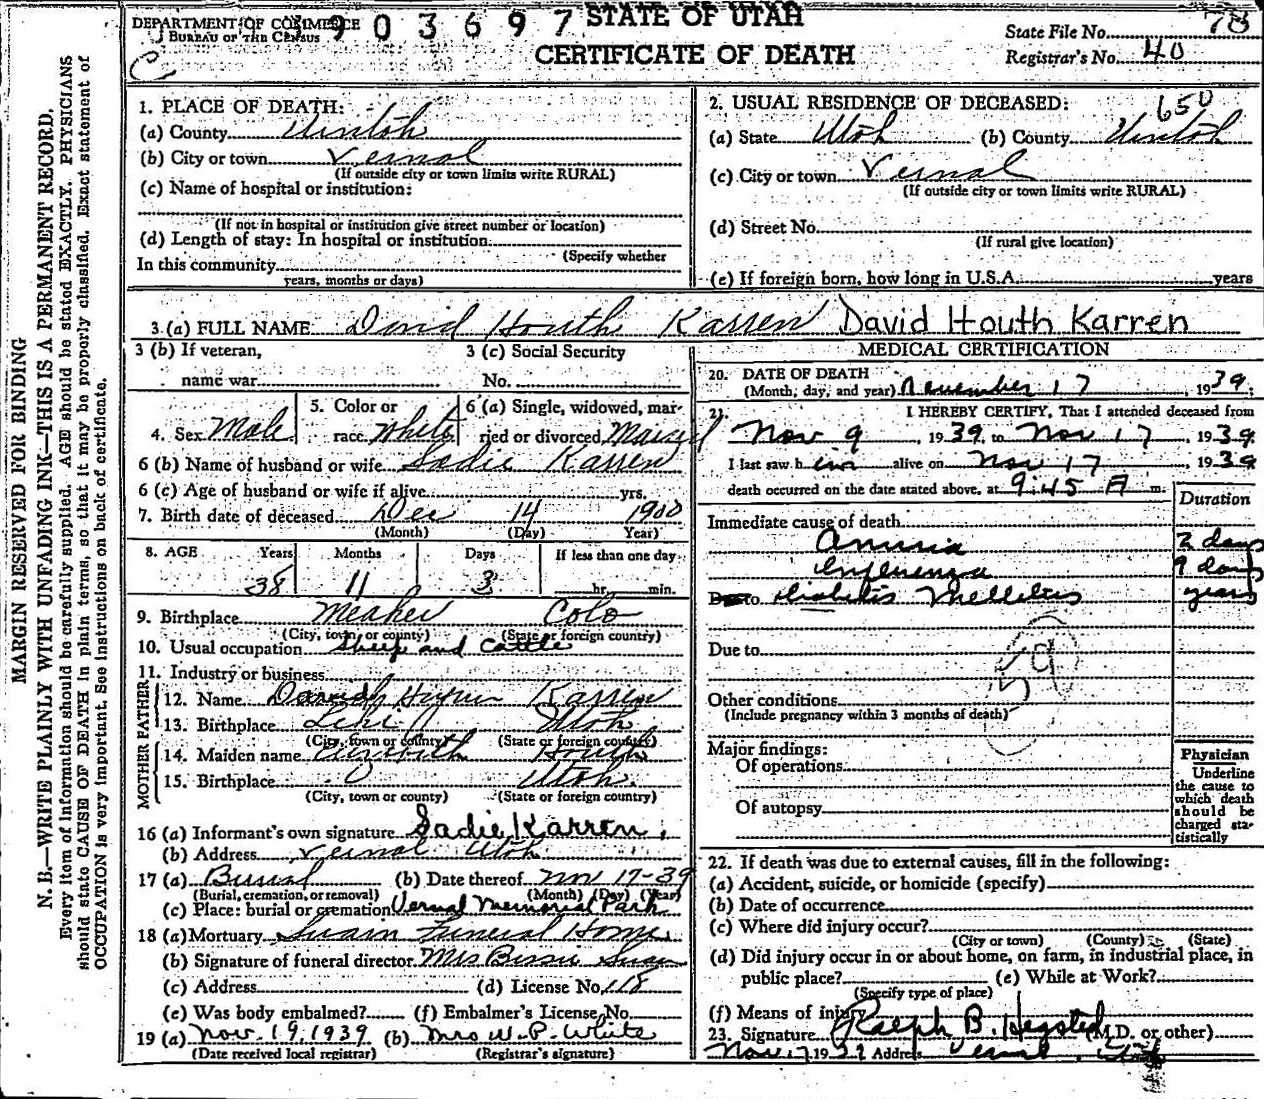 DEPARTMENT OF COMMERCE
BUREAU OF THE CENSUS
3903697
STATE OF UTAH
CERTIFICATE OF DEATH
State File No. 78
Registrar's No. 40
MARGIN RESERVED FOR BINDING
N. B.—WRITE PLAINLY WITH UNFADING INK—THIS IS A PERMANENT RECORD.
Every item of information should be carefully supplied. AGE should be stated EXACTLY. PHYSICIANS
should state CAUSE OF DEATH in plain terms, so that it may be properly classified. Exact statement of
OCCUPATION is very important. See instructions on back of certificate.
1. PLACE OF DEATH:
(a) County Uintah
(b) City or town Vernal
(If outside city or town limits write RURAL)
(c) Name of hospital or institution:
(If not in hospital or institution give street number or location)
(d) Length of stay: In hospital or institution
(Specify whether
In this community
years, months or days)
2. USUAL RESIDENCE OF DECEASED:
650
(a) State Utah (b) County Uintah
(c) City or town Vernal
(If outside city or town limits write RURAL)
(d) Street No.
(If rural give location)
(e) If foreign born, how long in U.S.A. years
3 (a) FULL NAME David Houth Karren David Houth Karren
3 (b) If veteran,
name war
3 (c) Social Security
No.
4. Sex Male
5. Color or
race White
6 (a) Single, widowed, mar-
ried or divorced Married
6 (b) Name of husband or wife Sadie Karren
6 (c) Age of husband or wife if alive yrs.
7. Birth date of deceased Dec 14 1900
(Month) (Day) Year)
8. AGE Years Months Days If less than one day
38 11 3 hr. min.
9. Birthplace Meaker Colo
(City, town, or county) (State or foreign country)
10. Usual occupation Sheep and Cattle
11. Industry or business
FATHER
12. Name David Karren
13. Birthplace Lehi Utah
(City, town or county) (State or foreign country)
MOTHER
14. Maiden name Elizabeth Houth
15. Birthplace Utah
(City, town or county) (State or foreign country)
16 (a) Informant's own signature Sadie Karren
(b) Address Vernal Utah
17 (a) Burial (b) Date thereof Nov 17-39
(Burial, cremation, or removal) (Month) (Day) (Year)
(c) Place: burial or cremation Vernal Memorial Park
18 (a) Mortuary Swain Funeral Home
(b) Signature of funeral director Mrs Bessie Swain
(c) Address (d) License No. 118
(e) Was body embalmed? (f) Embalmer's License No.
19 (a) Nov. 19, 1939 (b) Mrs W. P. White
(Date received local registrar) (Registrar's signature)
MEDICAL CERTIFICATION
20. DATE OF DEATH
(Month, day, and year) November 17, 1939
21. I HEREBY CERTIFY, That I attended deceased from
Nov 9, 1939, to Nov 17, 1939.
I last saw him alive on Nov 17, 1939
death occurred on the date stated above, at 9:45 A m.
Duration
Immediate cause of death
Anuria 2 days
Influenza 9 days
Due to Diabetis Mellitus years
Due to
59
Other conditions
(Include pregnancy within 3 months of death)
Major findings:
Of operations
Of autopsy
Physician
Underline
the cause to
which death
should be
charged sta-
tistically
22. If death was due to external causes, fill in the following:
(a) Accident, suicide, or homicide (specify)
(b) Date of occurrence
(c) Where did injury occur?
(City or town) (County) (State)
(d) Did injury occur in or about home, on farm, in industrial place, in
public place? (e) While at Work?
(Specify type of place)
(f) Means of injury
23. Signature Ralph B. Hegsted (M.D. or other)
Nov 17, 1939 Address Vernal, Utah